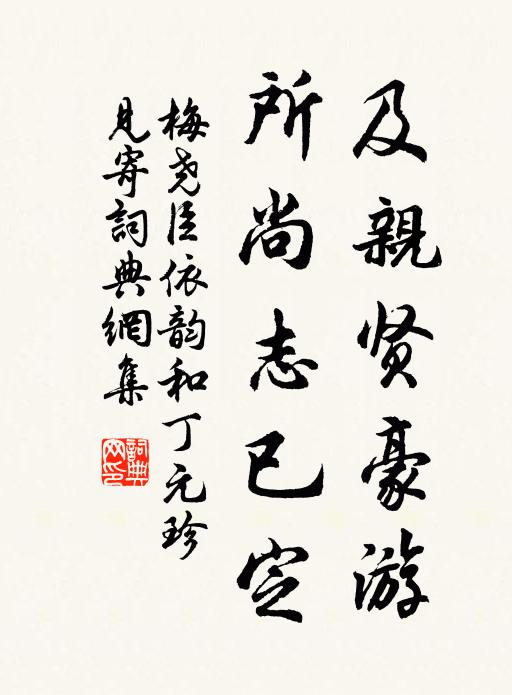 及親贤豪游
所尚志已定
梅尧臣依韵和丁元珍
見寄詞典網集
詞典
网印